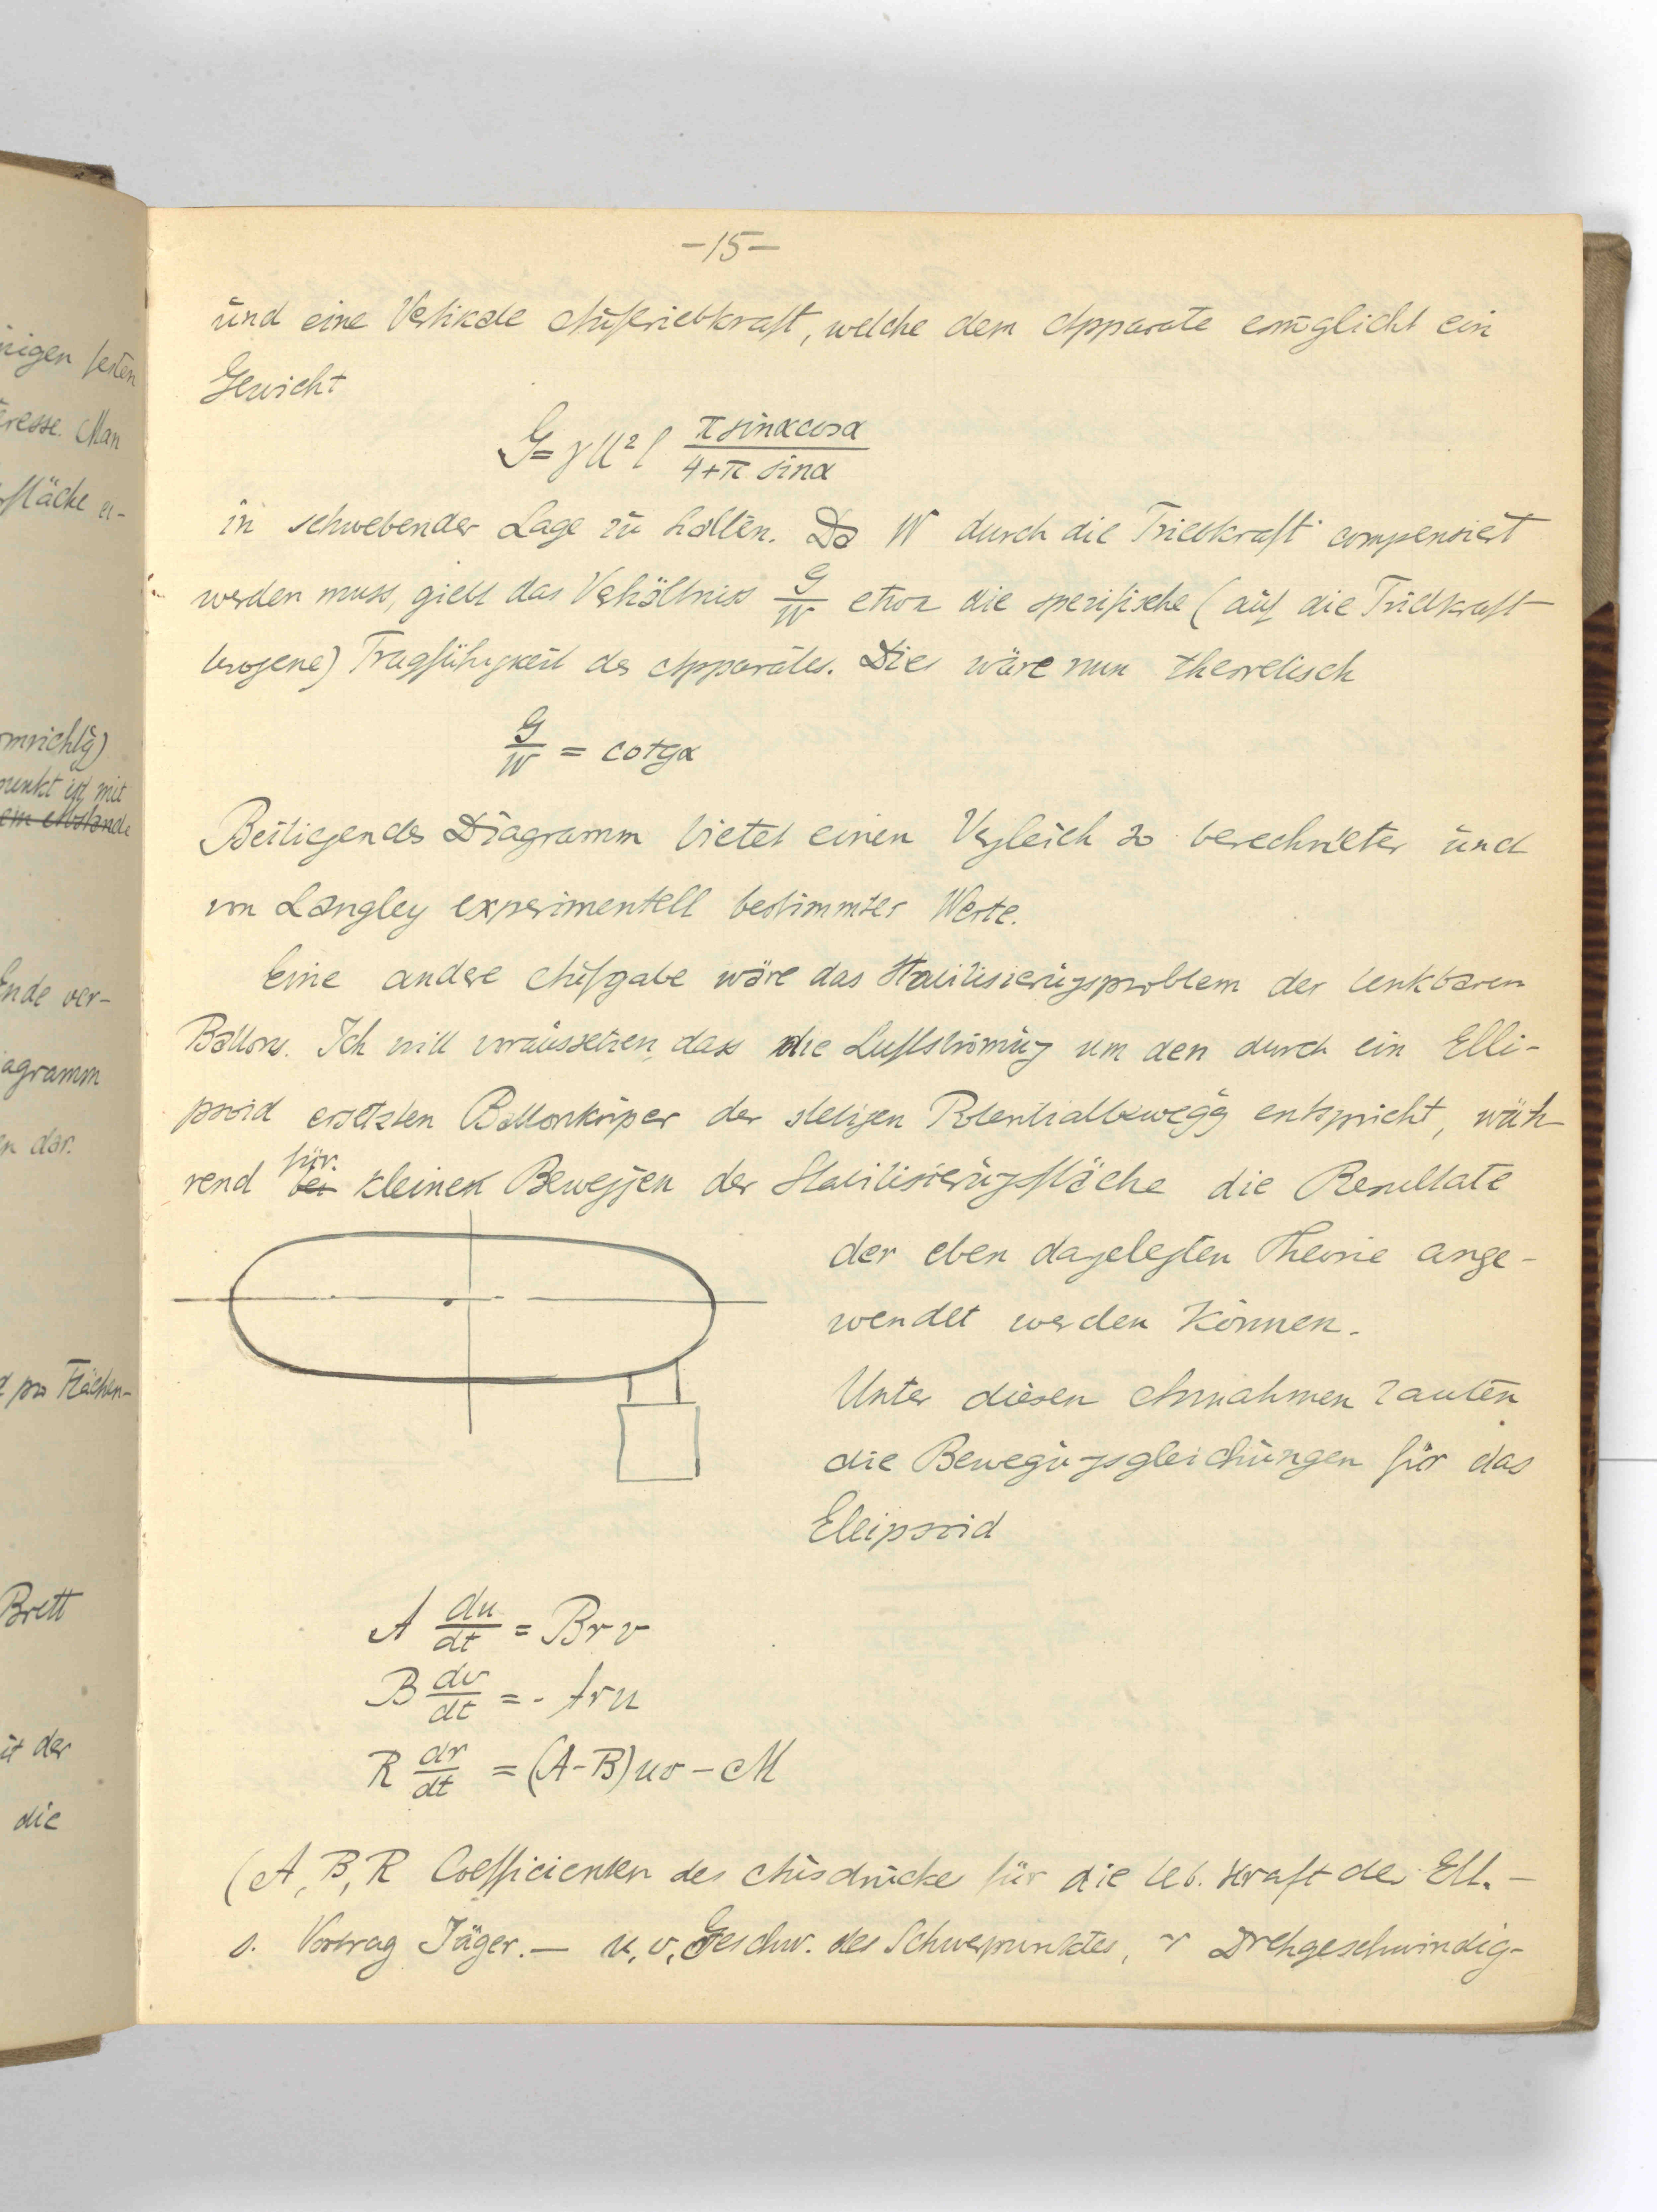 -15-
und eine Vertikale Auftriebkraft, welche dem Apparate ermöglicht ein
Gewicht
G = γU²l (π sinα cosα)/(4+π sinα)
in schwebender Lage zu halten. Da W durch die Triebkraft compensiert
werden muss, giebt das Verhältniss G/W etwa die spezifische (auf die Triebkraft
bezogene) Tragfähigkeit des Apparates. Dies wäre nun theoretisch
G/W = cotgα
Beiliegendes Diagramm bietet einen Vergleich so berechneter und
von Langley experimentell bestimmter Werte.
Eine andere Aufgabe wäre das Stabilisierungsproblem der lenkbaren
Ballons. Ich will voraussetzen, dass die Luftströmung um den durch ein Elli-
psoid ersetzten Ballonkörper der stetigen Potentialbewegg entspricht, wäh-
rend bei für kleinen Beweggen der Stabilisierungsfläche die Resultate
der eben dargelegten Theorie ange-
wendet werden können.
Unter diesen Annahmen lauten
die Bewegungsgleichungen für das
Ellipsoid
A du/dt = Brv
B dv/dt = - Aru
R dr/dt = (A-B)uv - M
(A, B, R Coefficienten des Ausdrucks für die leb. Kraft des Ell. -
s. Vortrag Jäger. - u, v, Geschw. des Schwerpunktes, r Drehgeschwindig-
nigen festen
eresse. Man
fläche er-
omrichtg)
punkt ist mit
em Abstande
Ende ver-
agramm
en dar.
pro Flächen-
Brett
it der
die